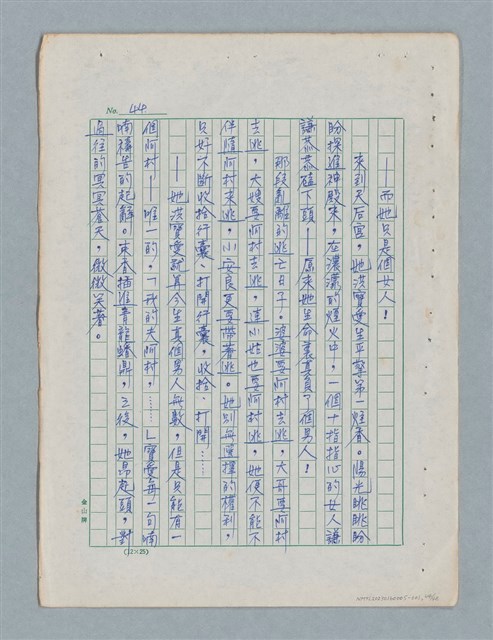 No. 44
——而她只是個女人!
來到天后宮,她洪寶愛生平擎第一炷香。陽光眺眺盼
盼探進神殿來,在濃濃的煙火中,一個十指指心的女人謙
謙恭恭磕下頭——原來她生命裏要負了個男人!
那段亂離的逃亡日子。婆婆要阿村去逃,大哥要阿村
去逃,大嫂要阿村去逃,連小姑也要阿村逃,她便不能不
伴隨阿村來逃,小安良更要帶著逃。她別無選擇的權利,
只好不斷收拾行囊、打開行囊,收拾、打開……
——她洪寶愛就算今生裏個男人無數,但是只能有一
個阿村——唯一的,「我的夫阿村,……」寶愛每一句喃
喃禱告的起辭。來香插進青龍蟠鼎,之後,她昂起頭,對
過往的冥冥蒼天,微微笑著。
金山牌
(12×25)